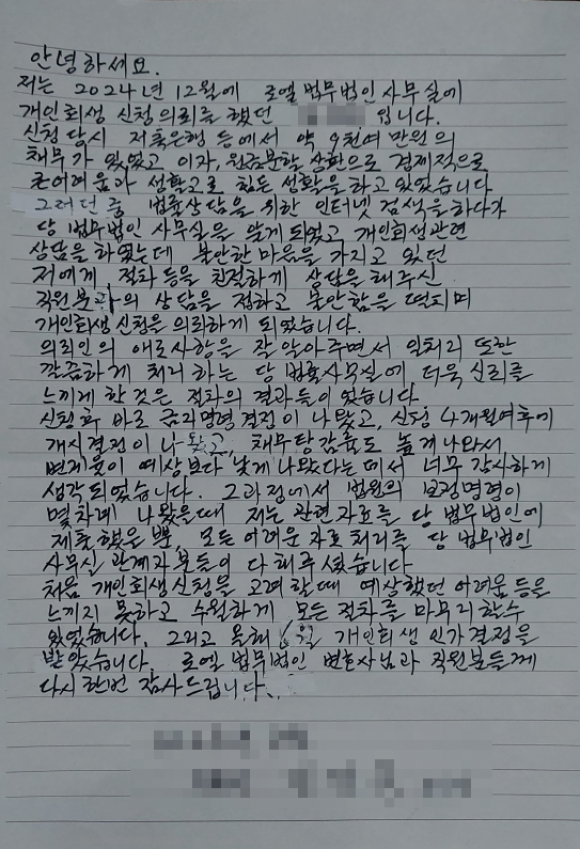 안녕하세요.
저는 2024년 12월에 로엘 법무법인 사무실에
개인회생 신청 의뢰를 했던 입니다.
신청 당시 저축은행 등에서 약 9천여 만원의
채무가 있었고 이자, 원금분할 상환으로 경제적으로
큰어려움과 생활고로 힘든 생활을 하고 있었습니다
그러던 중 법률상담을 위한 인터넷 검색을 하다가
당 법무법인 사무실을 알게 되었고 개인회생관련
상담을 하였는데 불안한 마음을 가지고 있던
저에게 절차 등을 친절하게 상담을 해주신
직원분과의 상담을 접하고 불안함을 떨치며
개인회생신청을 의뢰하게 되었습니다.
의뢰인의 애로사항을 잘 알아주면서 일처리 또한
깔끔하게 처리 하는 당 법률사무실에 더욱 신뢰를
느끼게 한 것은 절차의 결과들이 었습니다
신청후 바로 금지명령 결정이 나왔고, 신청 4개월여후에
개시결정이 나왔고, 채무탕감률도 높게 나와서
변제율이 예상보다 낮게 나왔다는 데서 너무 감사하게
생각되었습니다. 그과정에서 법원의 보정명령이
몇차례 나왔을때 저는 관련자료를 당 법무법인에
제출했을 뿐, 모든 어려운 자료 처리를 당 법무법인
사무실 관계자분들이 다 해주셨습니다
처음 개인회생신청을 고려할때 예상했던 어려움등을
느끼지 못하고 수월하게 모든 절차를 마무리 할수
있었습니다. 그리고 올해 6월 개인회생 인가결정을
받았습니다. 로엘 법무법인 변호사님과 직원분들께
다시한번 감사드립니다.